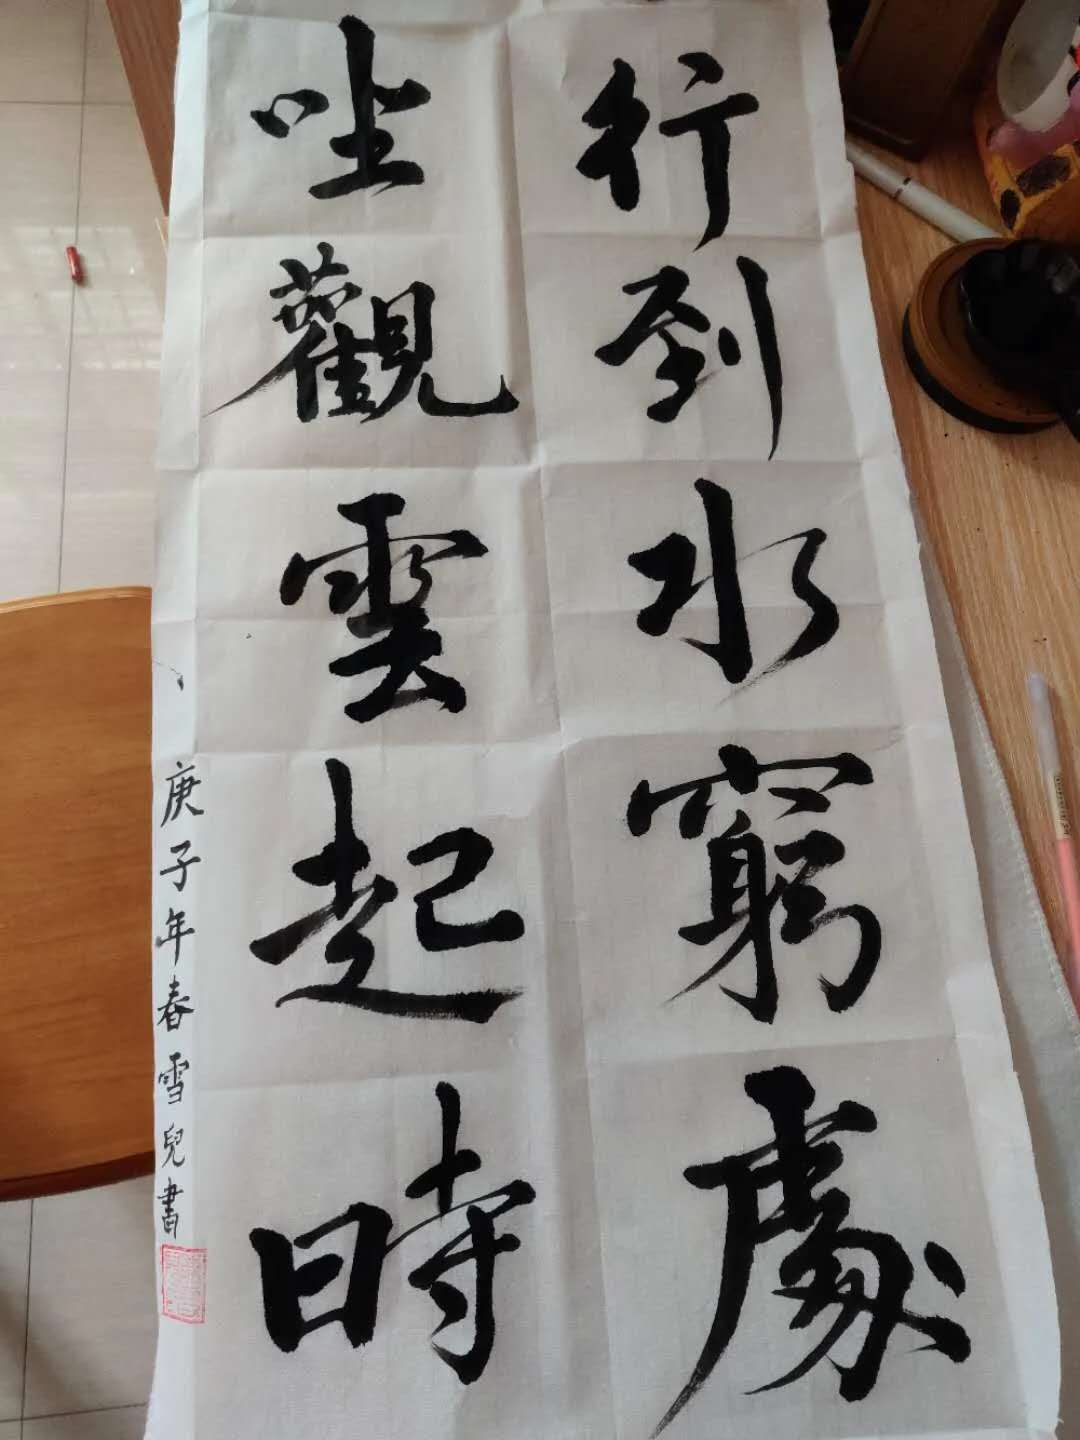 行到水窮處
坐觀雲起時
庚子年春雪兒書